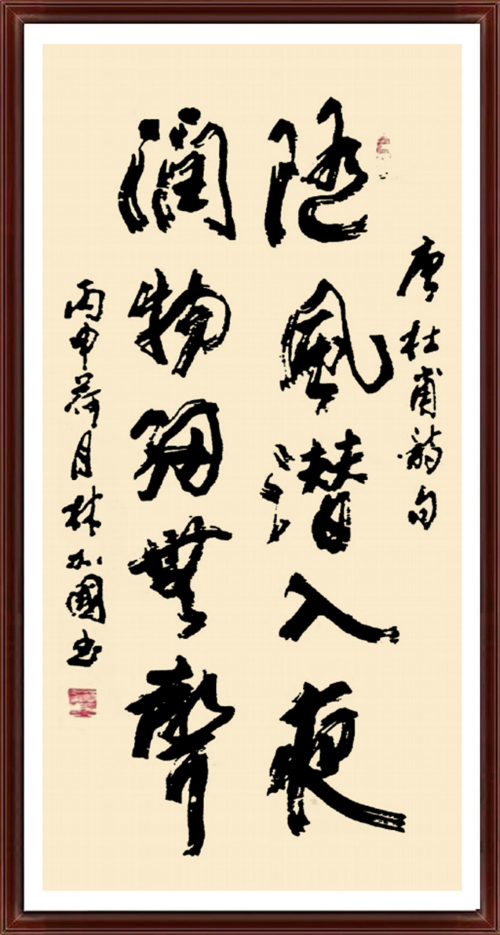 唐杜甫詩句
随風潜入夜
潤物細無聲
丙申荷月林加國书